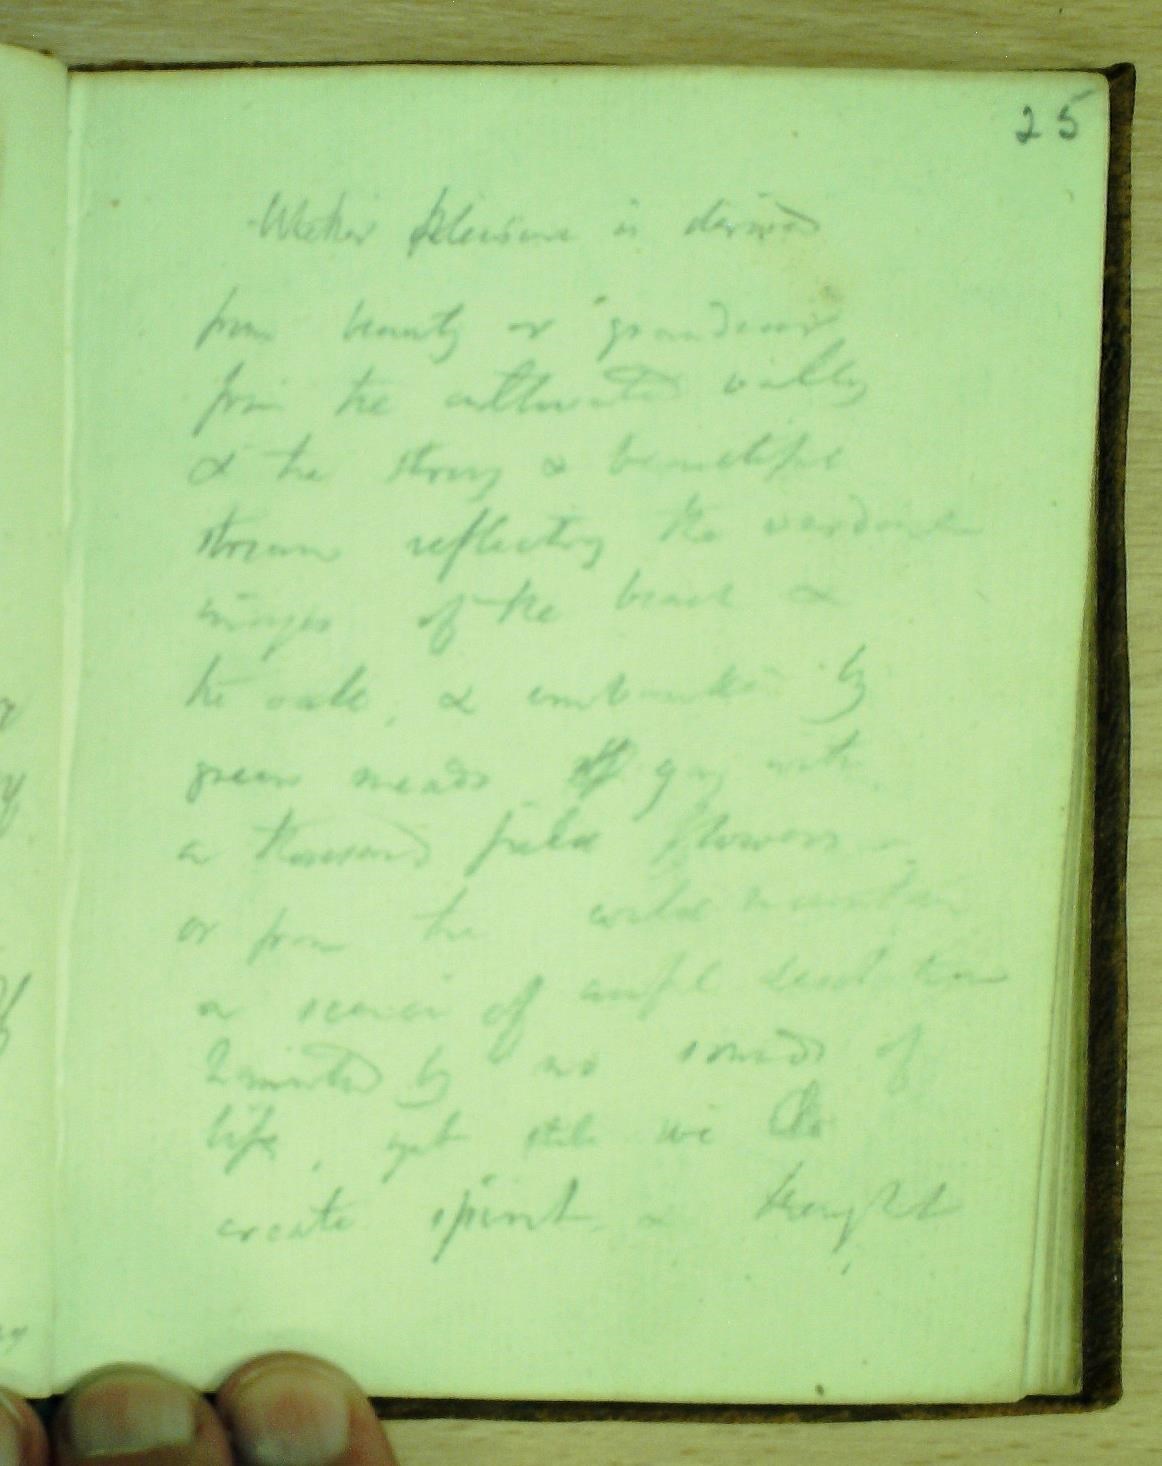 25
Whether pleasure is derived
from beauty or grandeur
from the cultivated valley
& the strong & beautiful
stream reflecting the verdant
images of the beach &
the oak, & embanked by
green meads gay with
a thousand field flowers
or from the wild mountain
a scene of awful desolation
animated by no sounds of
life, yet still we
create spirit & thought